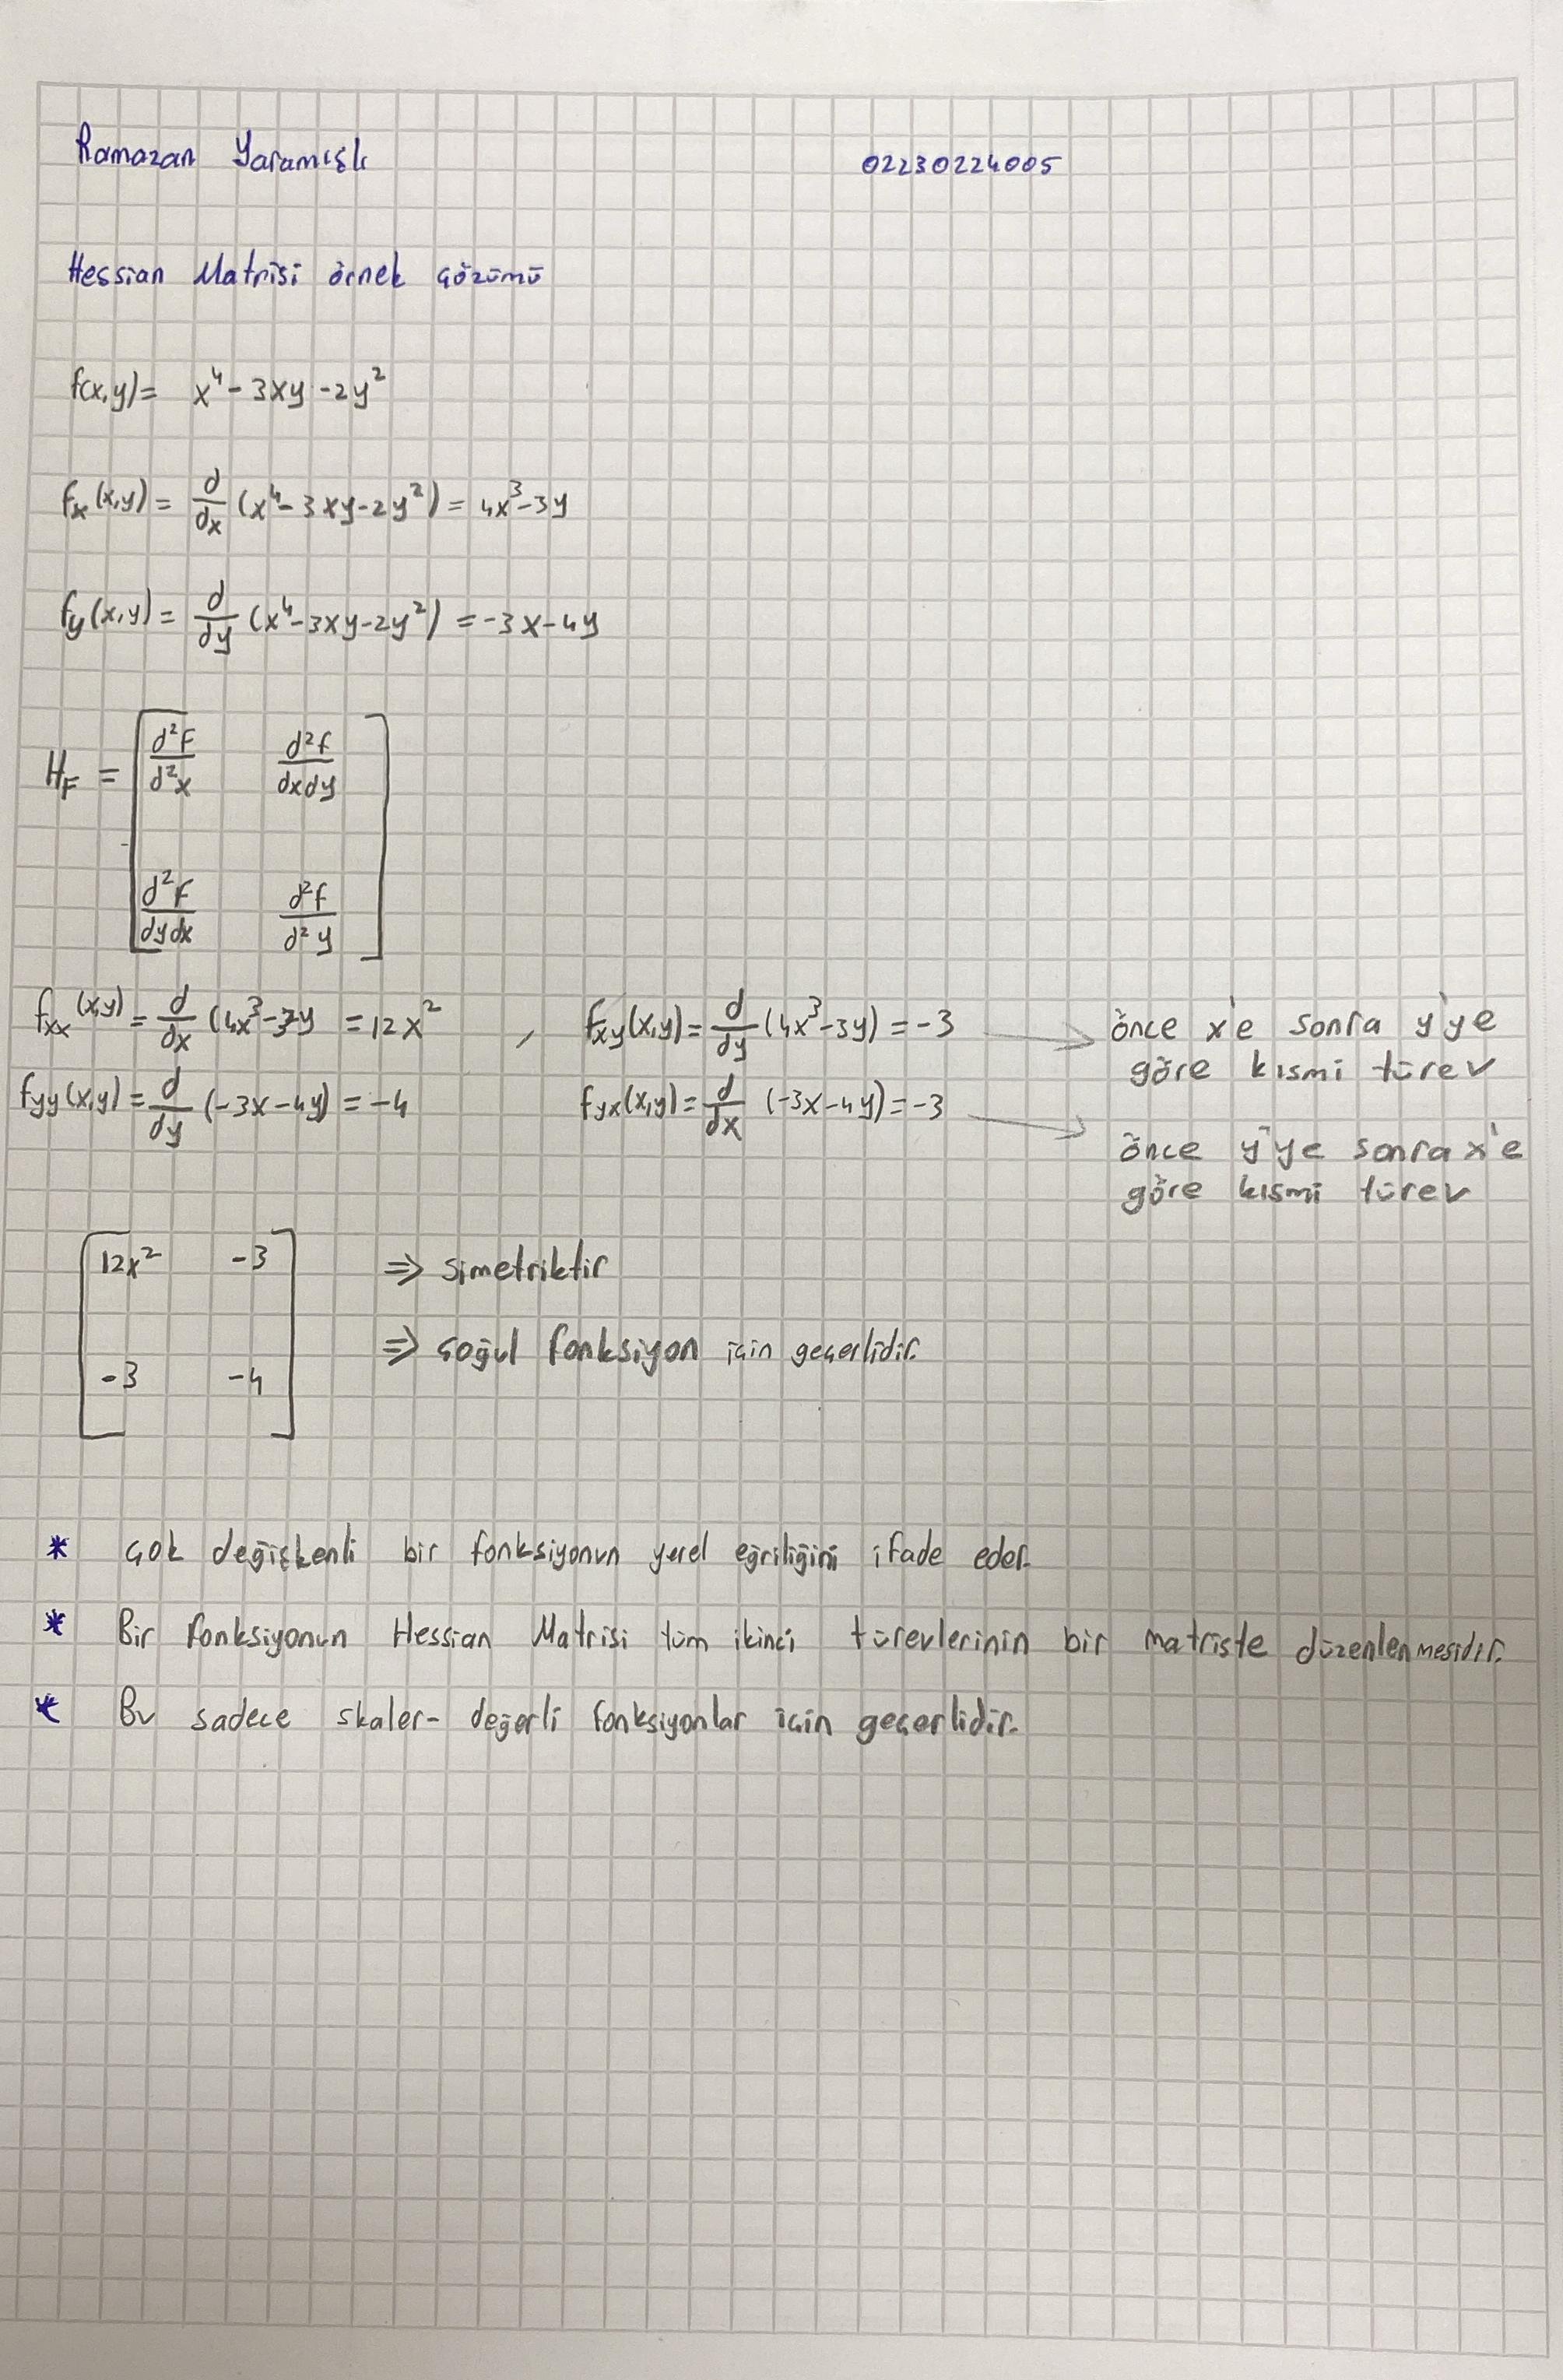 Ramazan Yaramışlı 02230224005
Hessian Matrisi örnek çözümü
f(x,y) = x⁴ - 3xy - 2y²
fx(x,y) = d/dx (x⁴ - 3xy - 2y²) = 4x³ - 3y
fy(x,y) = d/dy (x⁴ - 3xy - 2y²) = -3x - 4y
HF = [ d²F/d²x d²f/dxdy
d²F/dydx d²f/d²y ]
fxx(x,y) = d/dx (4x³ - 3y = 12x² , fxy(x,y) = d/dy (4x³ - 3y) = -3 → önce x'e sonra y'ye
göre kısmi türev
fyy(x,y) = d/dy (-3x - 4y) = -4 fyx(x,y) = d/dx (-3x - 4y) = -3 →
önce y'ye sonra x'e
göre kısmi türev
[ 12x² -3 ⇒ simetriktir
⇒ çoğul fonksiyon için geçerlidir.
-3 -4 ]
* çok değişkenli bir fonksiyonun yerel eğriliğini ifade eder.
* Bir fonksiyonun Hessian Matrisi tüm ikinci türevlerinin bir matriste düzenlenmesidir.
* Bu sadece skaler-değerli fonksiyonlar için geçerlidir.